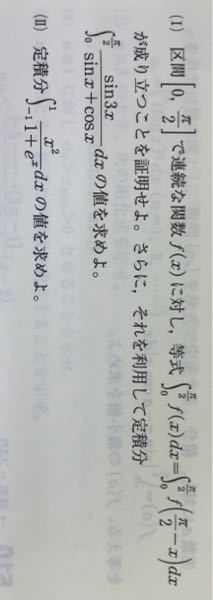 (I) 区間 [0, π/2] で連続な関数 f(x) に対し, 等式 ∫₀^{π/2} f(x)dx = ∫₀^{π/2} f(π/2 − x)dx
が成り立つことを証明せよ。さらに, それを利用して定積分
∫₀^{π/2} sin3x/(sinx+cosx) dx の値を求めよ。
(II) 定積分 ∫₋₁^1 x²/(1+eˣ) dx の値を求めよ。